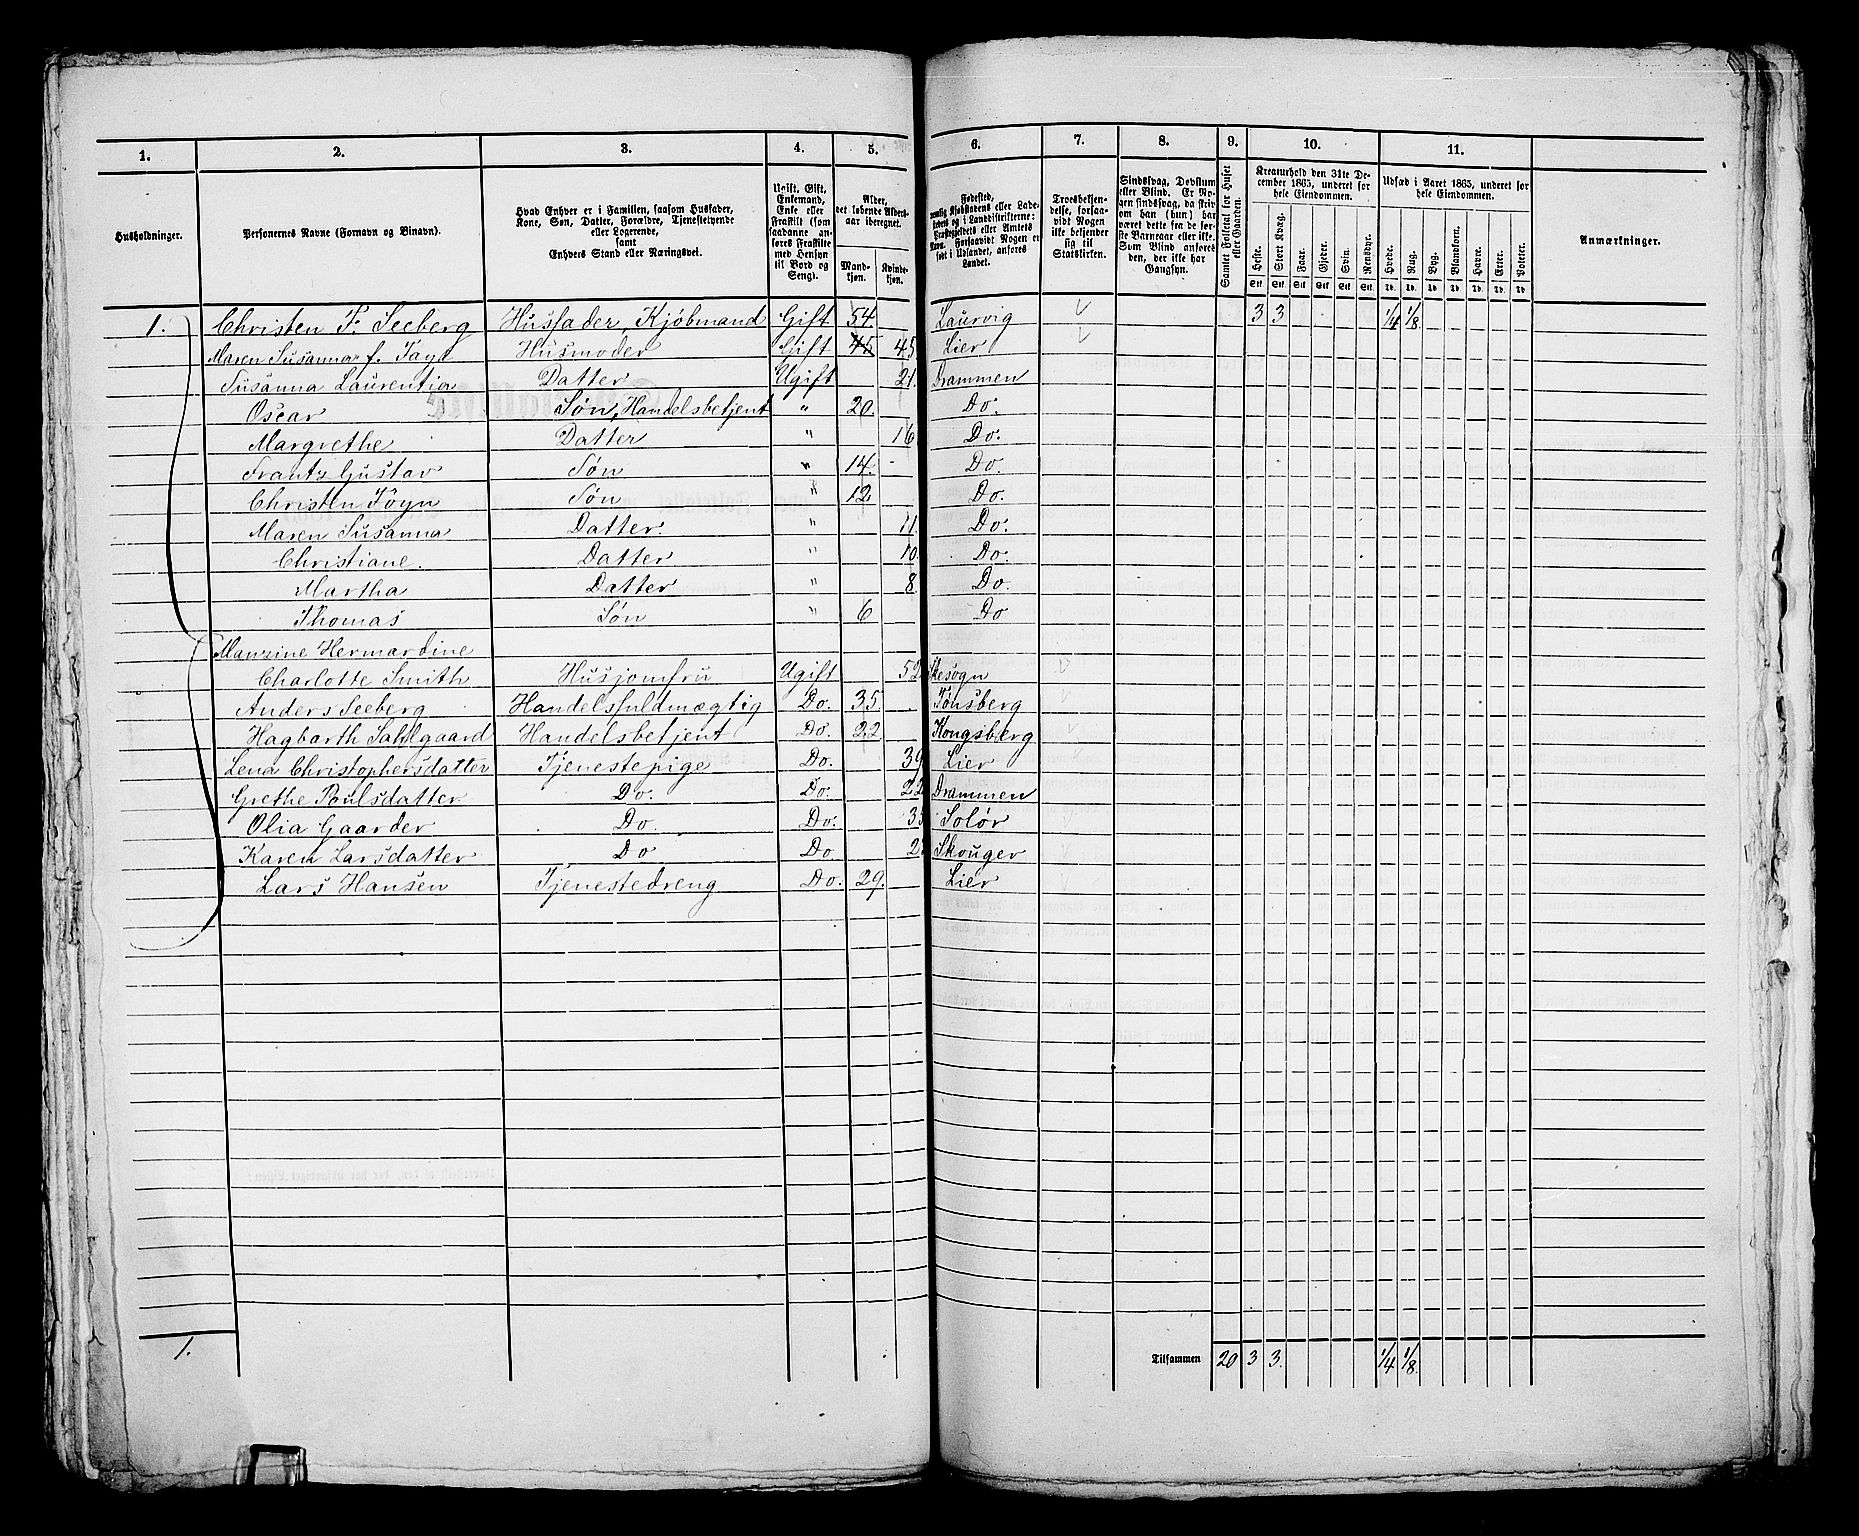 1. 2. 3. 4. 5. 6. 7. 8. 9. 10. 11.
Husholdninger.
Personernes Navne (Fornavn og Binavn).
Hvad Enhver er i Familien, saasom Husfader,
Kone, Søn, Datter, Forældre, Tjenestetyende
eller Logerende,
samt
Enhvers Stand eller Næringsvei.
Ugift, Gift,
Enkemand,
Enke eller
Fraskilt (som
saadanne an-
føres Fraskilte
med Hensyn
til Bord og
Seng).
Alder,
det løbende Alders-
aar iberegnet.
Mand-
kjøn.
Kvinde-
kjøn.
Fødested,
nemlig Kjøbstadens eller Lade-
stedets og i Landdistrikterne:
Præstegjeldets eller Amtets
Navn. Forsaavidt Nogen er
født i Udlandet, anføres
Landet.
Troesbekjen-
delse, forsaa-
vidt Nogen
ikke bekjender
sig til
Statskirken.
Sindssvag, Døvstum
eller Blind. Er No-
gen sindssvag, da skriv
om han (hun) har
været dette fra de før-
ste Barneaar eller ikke.
Som Blind anføres
den, der ikke har
Gangsyn.
Samlet Folketal for Huset
eller Gaarden.
Kreaturhold den 31te De-
cember 1865, underet for
hele Eiendommen.
Heste. Stort Kvæg. Faar. Gjeder. Svin. Rensdyr.
Stk Stk Stk Stk Stk Stk
Udsæd i Aaret 1865, underet for
hele Eiendommen.
Hvede. Rug. Byg. Blandkorn. Havre. Erter. Poteter.
Td. Td. Td. Td. Td. Td. Td.
Anmærkninger.
1. Christen F. Seeberg Husfader, Kjöbmand Gift 54. Laurvig 3 3 1/4 1/8
Maren Susanna f. Föyn Husmoder Gift 45 45 Lier
Susanna Laurentia Datter Ugift 21. Drammen
Oscar Søn, Handelsbetjent " 20. Do.
Margrethe Datter " 16 Do.
Frantz Gustav Søn " 14. Do.
Christen Föyn Søn " 12 Do.
Maren Susanna Datter. " 11. Do.
Christiane. Datter " 10. Do.
Martha Datter " 8. Do.
Thomas Søn " 6 Do
Hermandine
Charlotte Smith Husjomfru Ugift 52
Anders Seeberg Handelsfuldmægtig Do. 35. Tönsberg
Hagbarth Sahlgaard Handelsbetjent Do. 22 Kongsberg
Lena Christophersdatter Tjenestepige Do. 39 Lier
Grethe Poulsdatter Do. Do. 22 Drammen
Olia Gaarder Do. Do. Solör
Karen Larsdatter Do Do Skouger
Lars Hansen Tjenestedreng Do. 29. Lier
1. Tilsammen 20 3 3. 1/4 1/8